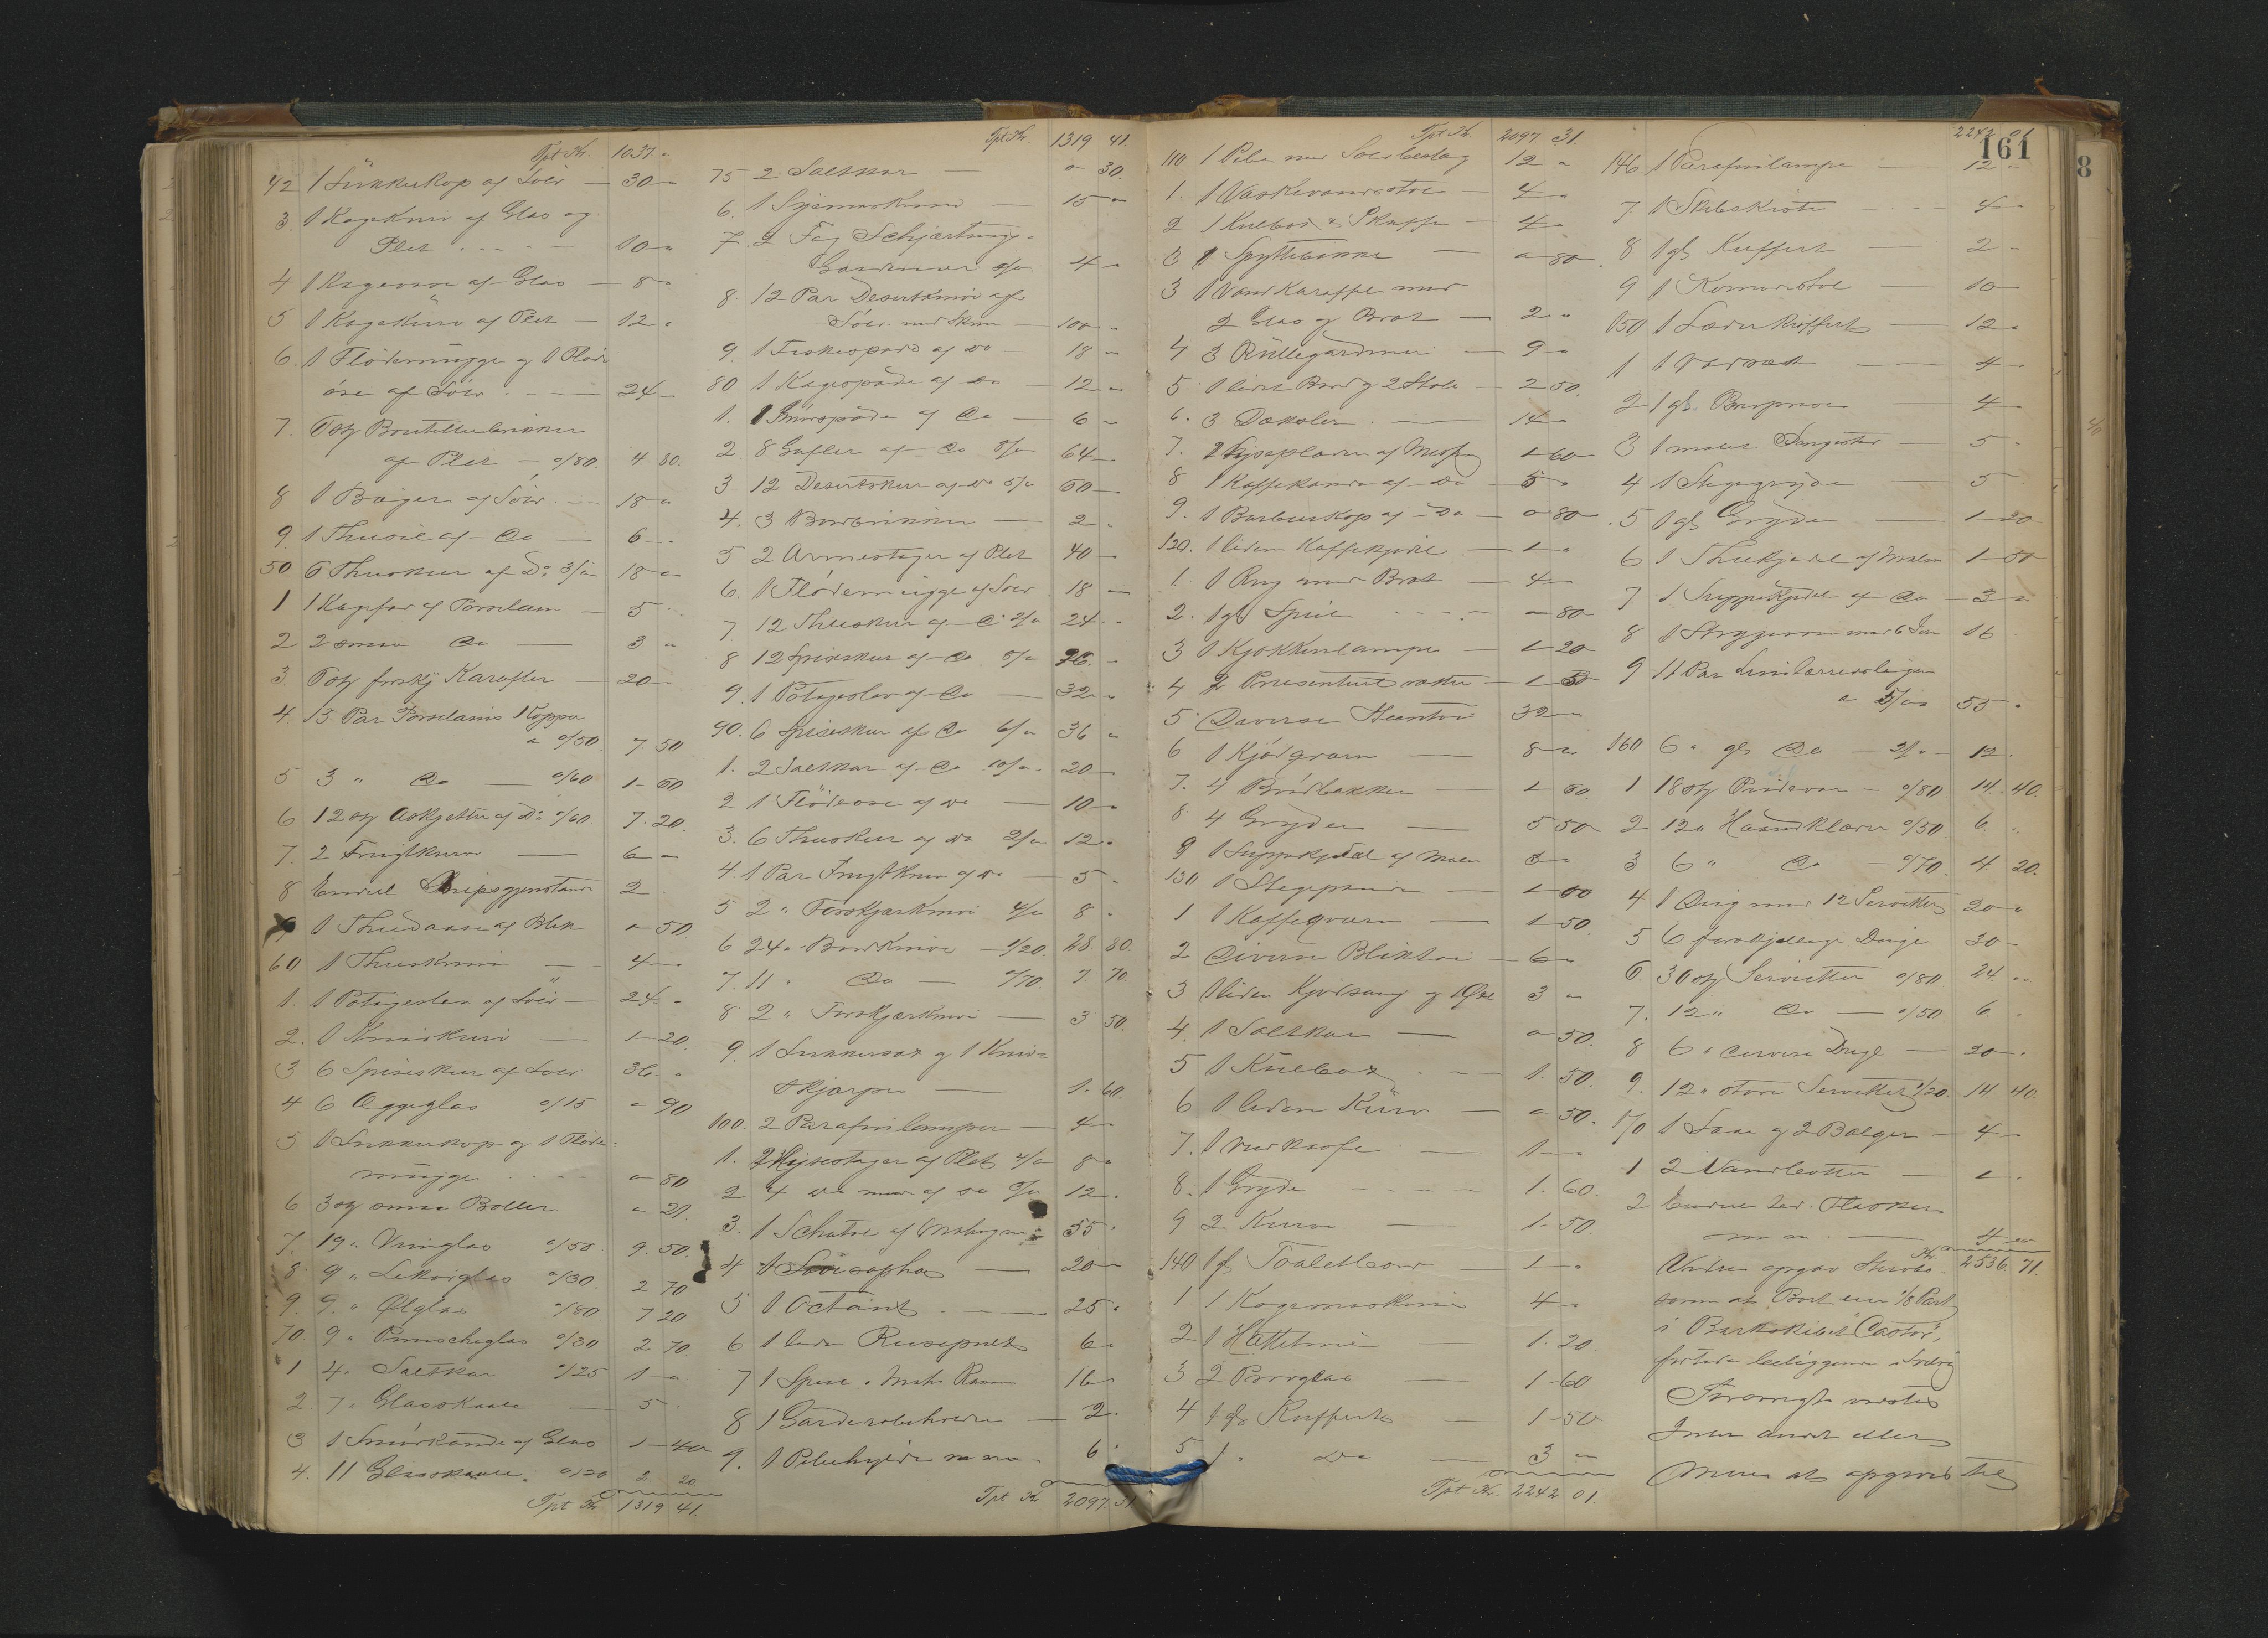 Tpt Kr. 1037 "
42 1 Sukkerkop af Sölv — 30 "
3. 1 Kagekurv af Glas og
Plet . . . — 10 "
4 1 Kagevase af Glas — 8 "
5 1 Kagekurv af Plet — 12 "
6. 1 Flödemugge og 1 Fløde
öse af Sölv . — 24 —
7. 6 stk Bouteillebrikker
af Plet — 0/80. 4 80.
8 1 Bæger af Sölv — 18 "
9. 1 Theesie af Do — 6 "
50 6 Theskeer af Do 3/" 18 "
1 1 Kagefad af Porcelain — 5
2 2 smaa Do — 3 "
3. 6 stk forskj Karafler — 20 —
4. 15 Par Porcelains Kopper
a 0/50. 7 50
5 3 " Do — 0/60 1 80
6 12 stk Askjetter af Do 0/60 7. 20.
7. 2 Frugtkurve — 6 "
8 Endeel Gipsgjenstande 2
9 1 Theedaase af Blik " 50
60 1 Theeskrin — 4 "
1. 1 Potageslev af Sölv — 24 "
2. 1 Knivkurv — 1 20.
3 6 Spiseskeer af Sölv 36 "
4 6 Æggeglas 0/15 " 90
5 1 Sukkerkop og 1 Fløde-
mugge . . . . " 80
6 3 stk smaa Boller " 21.
7. 19 " Vinglas 0/50 9. 50.
8 9 " Likörglas 0/30. 2 70
9. 9. " Ølglas 0/80 7 20
70. 9 " Punscheglas 0/30 2 70
1 4. Saltkar 0/25 1 "
2. 7 " Glasskaale — 5 "
3 1 Smörkande af Glas 1 40
4. 11 Glasskaale. 0/20 2 20
Tpt Kr 1319 41.
Tpt Kr. 1319 41.
75 2 Saltkar — " 30.
6. 1 Syemaskine — 15 "
7. 2 Fag Schjærtings-
Gardiner 2/" 4 "
8. 12 Par Desertknive af
Sölv med Skeer — 100 "
9. 1 Fiskespade af do — 18 "
80 1 Kagespade af do — 12 "
1. 1 Smörspade af Do — 6 "
2 8 Gafler af Do 8/" 64 —
3 12 Desertskeer af do 5/" 60 —
4. 3 Bordbrikker — 2 "
5 2 Armestager af Plet 40 "
6. 1 Flödemugge af Sölv 18 —
7. 12 Theskeer af Do 2/" 24 "
8 12 Spiseskeer af Do 8/" 96. —
9. 1 Potageslev af Do — 32 "
90. 6 Spiseskeer af Do 6/" 36 "
1. 2 Saltkar af Do 10/" 20 —
2 1 Flödeøse af do — 10 "
3. 6 Theskeer af do 2/" 12 "
4. 1 Par Frugtkniv af do — 5 "
5 2 " Forskjærknive 4/" 8 "
6 24 " Bordknive 1/20. 28. 80.
7. 11 " Do — 0/70. 7 70
8 2 " Forskjærknive — 3 50.
9. 1 Sukkersax og 1 Kniv-
skjærper — 1. 60.
100. 2 Parafinlamper — 4 "
1. 2 Lysestager af Plet 4/" 8 "
2 4 do mindre af do 3/" 12 "
3. 1 Schatol af Mahogni 55 "
4 1 Sovesopha — 20 "
5 1 Octant . — 25 "
6 1 liden Reisepult 6 "
7 1 Speil i Mah. Ramme 16 "
8 1 Garderobeholder — 2 "
9. 1 Pibehylde m m 6 "
Tpt Kr 2097. 31
Tpt Kr. 2097. 31.
110 1 Pibe med Sölvbeslag 12 "
1. 1 Vaskevandsstol — 4 "
2 1 Kulbox & Skuffe — 4 "
3 1 Spyttebakke — " 80
3 1 Vandkaraffel med
2 Glas og Bræt — 2 "
4 3 Rullegardiner — 9 "
5. 1 lidet Bord og 2 Stole — 2 50.
6. 3 Dæksler . — 14 "
7. 2 Lyseplader af Messing 1 60
8 1 Kaffekande af do 5 "
9. 1 Barbeerkop af Do — " 80
120. 1 liden Kaffekjedel — 1 "
1. 1 Rug med Bræt — 4 "
2. 1 gl Speil — " 80
3 1 Kjøkkenlampe — 1 20
4 2 Præsenteerbakker — 1 50
5. Diverse Steentöi 32 "
6 1 Kjödqvarn — 8 "
7. 4 Brødbakker — 1 60.
8 4 Gryder — 5 50
9 1 Suppekjedel af Malm 3 "
130 1 Stegepande — 1 00
1 1 Kaffeqvarn — 1 50.
2 Diverse Bliktöi — 6 "
3 1 liden Kjødsaug og 1 Øxe 3 "
4. 1 Saltkar — " 50.
5 1 Kulbox . — 1. 50.
6 1 liden Kurv — " 50.
7. 1 Vedkasse — 1 "
8. 1 Gryde — 1. 60.
9 2 Kurve — 1. 50.
140 1 gl Toaletbord — 1 "
1 1 Kogemaskine 4 "
2 1 Hættetine — 1. 20
3 2 Pöröglas — 1 60
4 1 gl Kuffert — 1 50
5 1 " do — 3 "
Tpt Kr. 2242 01.
2242 01
161
146 1 Parafinlampe — 12 "
7 1 Skibskiste 4 "
8 1 gl. Kuffert — 2 "
9 1 Komodestol — 10 —
150 1 Læderkuffert — 12 "
1 1 Vadsæk — 4 "
2 1 gl. — 4 "
3 1 malet Sengested — 5 "
4 1 Stegegryde — 5
5 1 gl Gryde — 1 20
6 1 Theekjedel af Malm 1 50
7 1 Suppekjedel af Do — 3 "
8 1 Strygejern med 6 Jern 16
9 11 Par Linnlærredslagen
a 5/" 55 "
160 6 " gl Do — 2/" 12.
1 18 stk Pudevar — 0/80 14. 40.
2 12 " Haandklæder 0/50 6. "
3 6 " Do — 0/70. 4 20.
4 1 Dug med 12 Servietter 20 "
5 6 forskjellige Duge 30 —
6. 30 stk Servietter 0/80 24. "
7. 12 " Do — 0/50 6. "
8 6 " diverse Duge — 20 "
9. 12 " store Servietter 1/20. 14. 40.
170 1 Saae og 2 Balger — 4 —
1 2 Vandbøtter — 1 "
2 Endeel led. Flasker
m m. — 4 "
Kr. 2536. 71.
Enken opgav Sterbo
som at Boet eier 1/8 Part
i Barkskibet "Castor",
fortiden beliggende i
Forøvrigt vidstes
Intet andet eller
Mere at opgive til
8